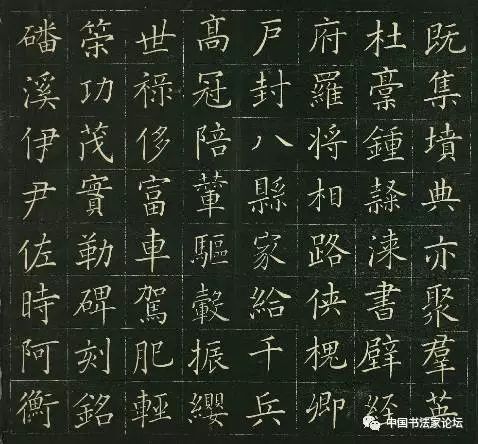 既集墳典亦聚羣英
杜稾鍾隸漆書壁經
府羅将相路俠槐卿
戶封八縣家給千兵
髙冠陪輦驅轂振纓
世祿侈富車駕肥輕
策功茂實勒碑刻銘
磻溪伊尹佐時阿衡
中国书法家论坛